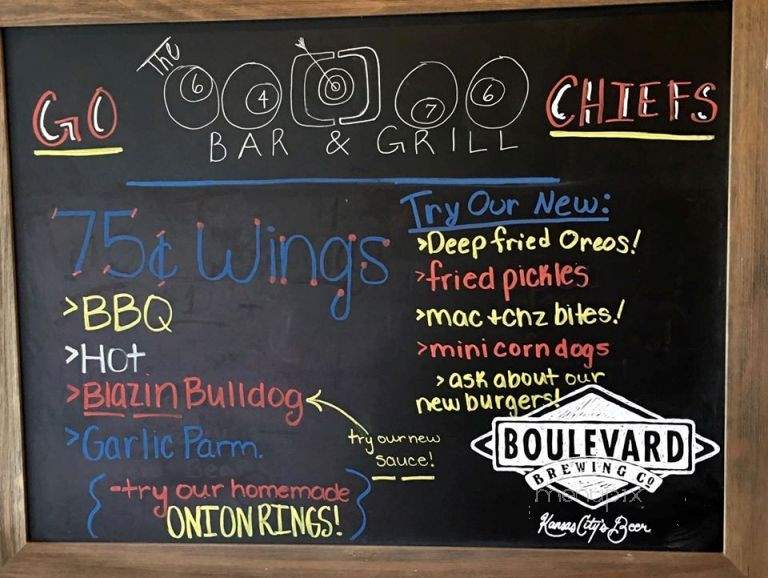 The
6 4 7 6
GO
BAR & GRILL
CHIEFS
75¢ Wings
>BBQ
>Hot
>Blazin Bulldog
>Garlic Parm.
try our new
sauce!
-try our homemade
ONION RINGS!
Try Our New:
>Deep fried Oreos!
>fried pickles
>mac+chz bites!
>mini corn dogs
>ask about our
new burgers!
BOULEVARD
BREWING CO
menupix
Kansas City's Beer